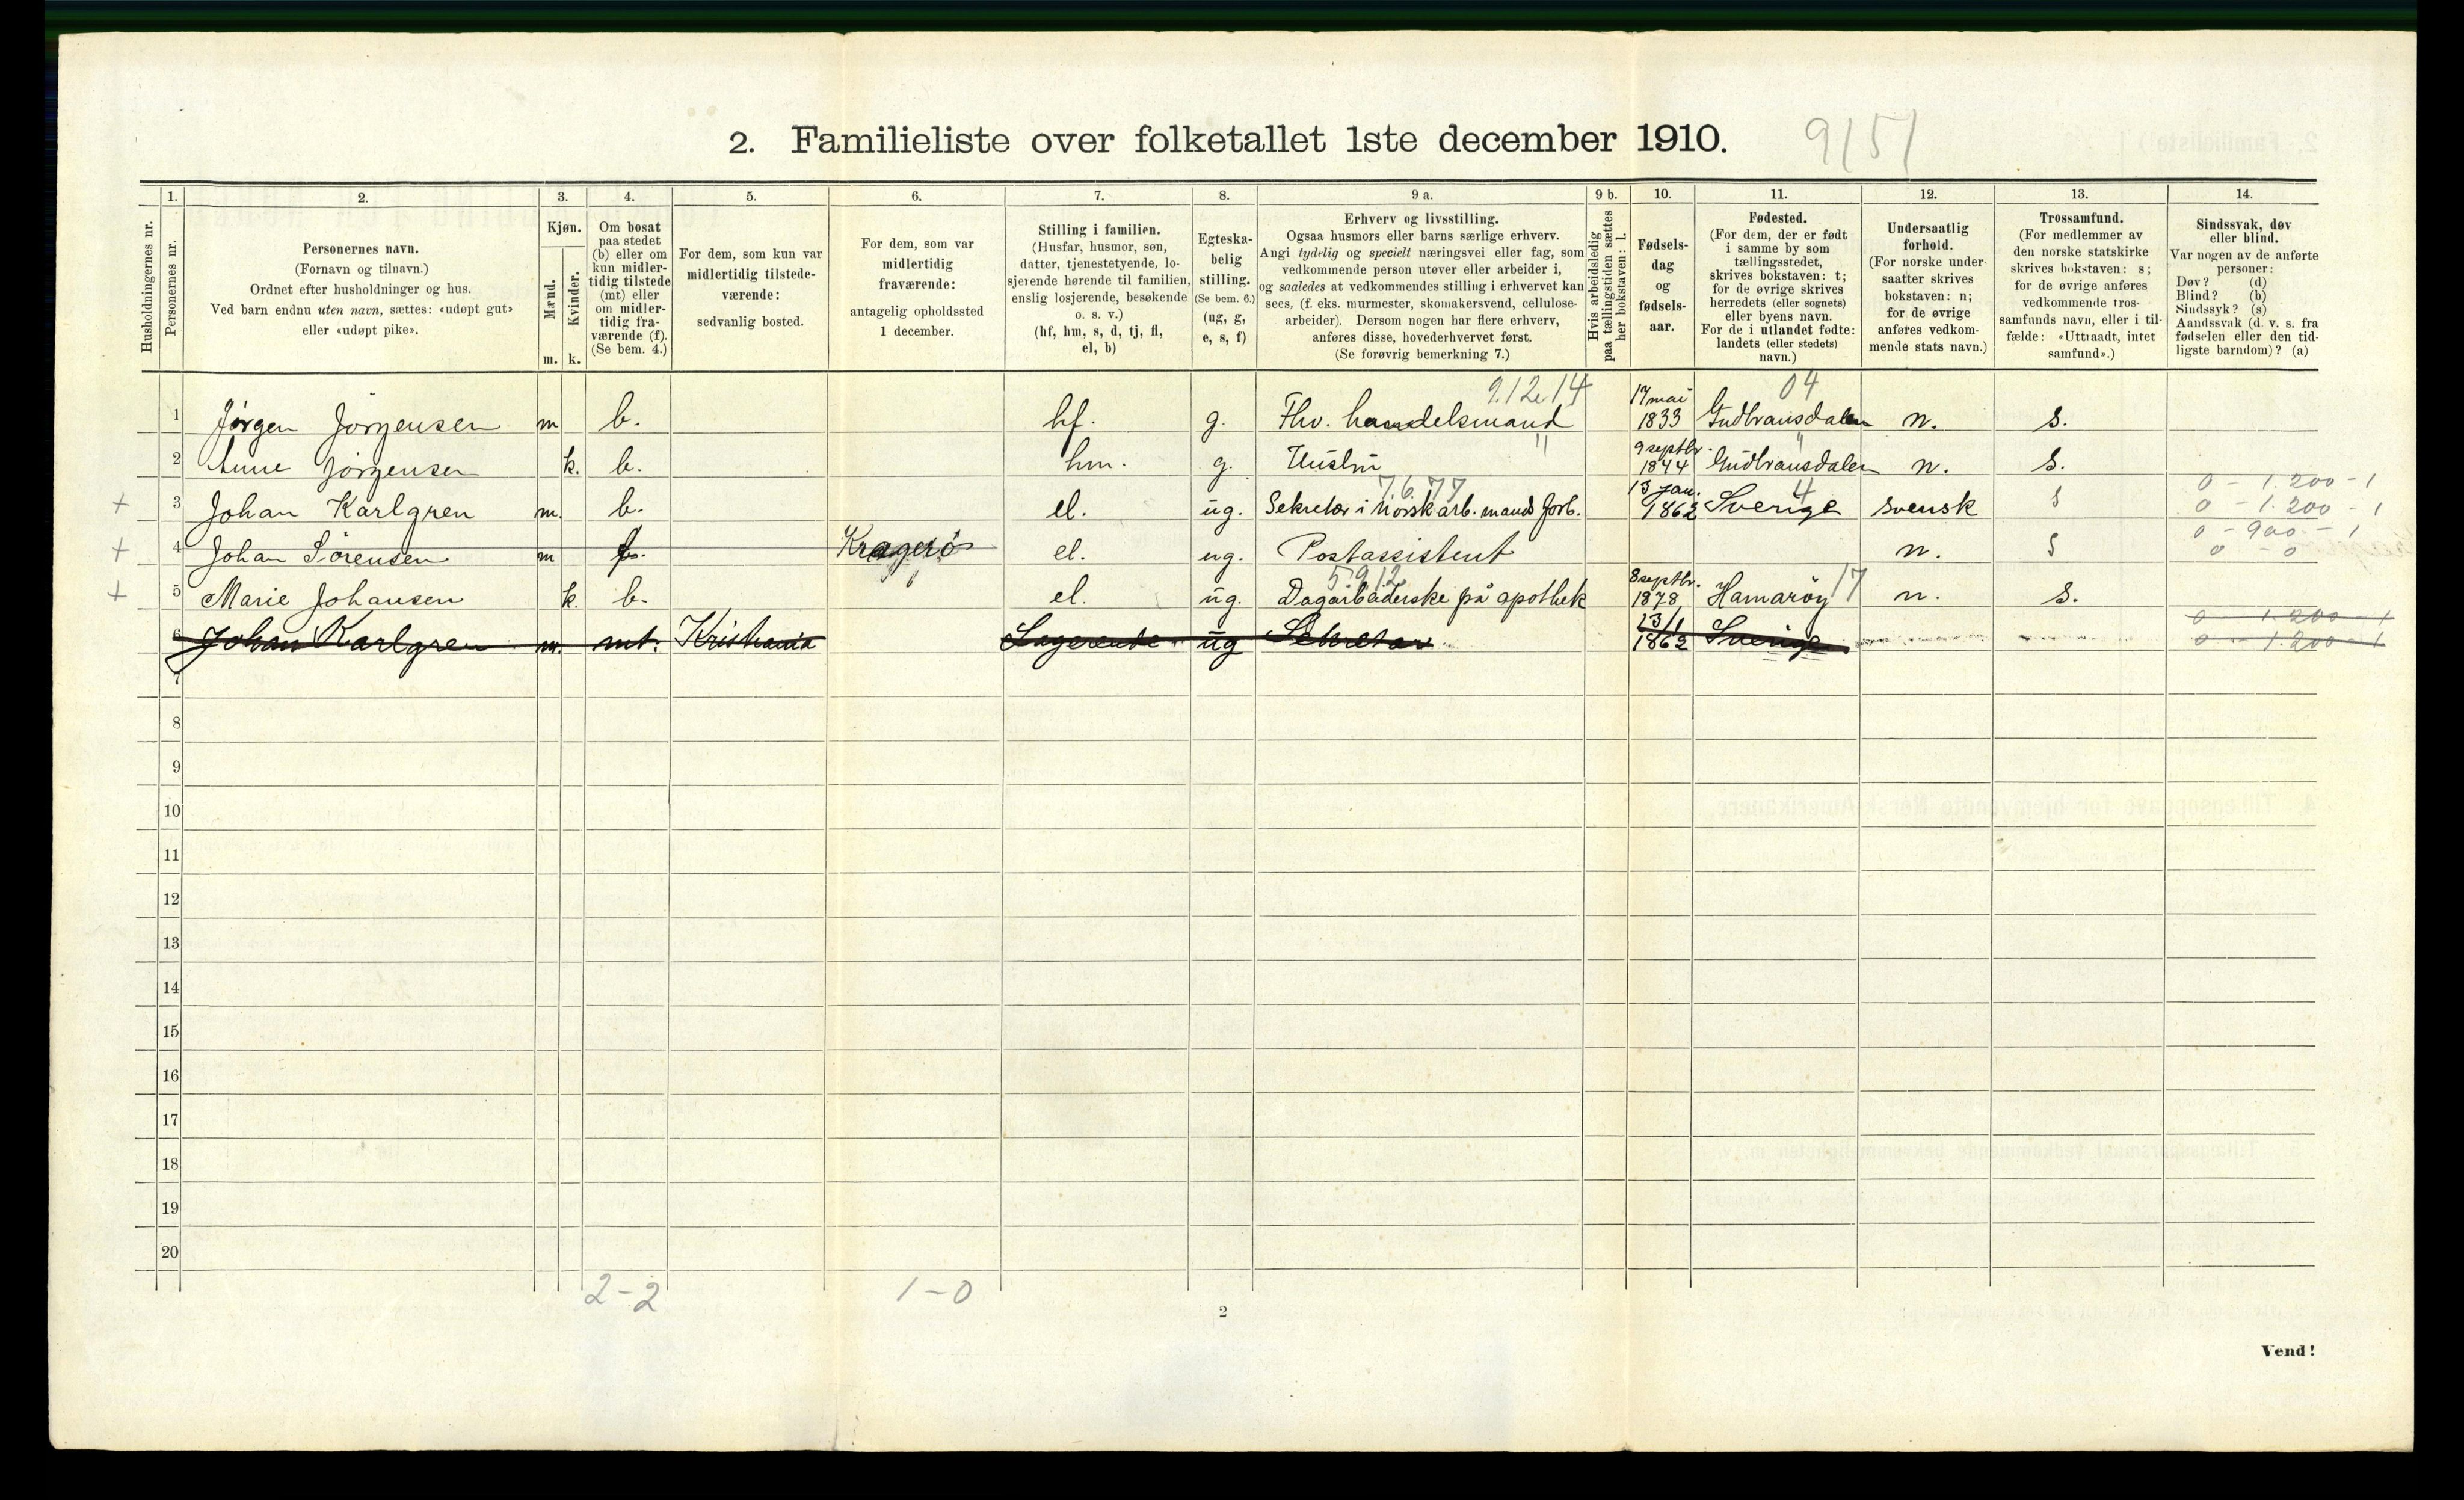 2. Familieliste over folketallet 1ste december 1910. 9151
1. 2. 3. 4. 5. 6. 7. 8. 9 a. 9 b. 10. 11. 12. 13. 14.
Husholdningernes nr.
Personernes nr.
Personernes navn.
(Fornavn og tilnavn.)
Ordnet efter husholdninger og hus.
Ved barn endnu uten navn, sættes: «udøpt gut»
eller «udøpt pike».
Kjøn.
Mænd.
Kvinder.
m. k.
Om bosat
paa stedet
(b) eller om
kun midler-
tidig tilstede
(mt) eller
om midler-
tidig fra-
værende (f).
(Se bem. 4.)
For dem, som kun var
midlertidig tilstede-
værende:
sedvanlig bosted.
For dem, som var
midlertidig
fraværende:
antagelig opholdssted
1 december.
Stilling i familien.
(Husfar, husmor, søn,
datter, tjenestetyende, lo-
sjerende hørende til familien,
enslig losjerende, besøkende
o. s. v.)
(hf, hm, s, d, tj, fl,
el, b)
Egteska-
belig
stilling.
(Se bem. 6.)
(ug, g,
e, s, f)
Erhverv og livsstilling.
Ogsaa husmors eller barns særlige erhverv.
Angi tydelig og specielt næringsvei eller fag, som
vedkommende person utøver eller arbeider i,
og saaledes at vedkommendes stilling i erhvervet kan
sees, (f. eks. murmester, skomakersvend, cellulose-
arbeider). Dersom nogen har flere erhverv,
anføres disse, hovederhvervet først.
(Se forøvrig bemerkning 7.)
Hvis arbeidsledig
paa tællingstiden sættes
her bokstaven: l.
Fødsels-
dag
og
fødsels-
aar.
Fødested.
(For dem, der er født
i samme by som
tællingsstedet,
skrives bokstaven: t;
for de øvrige skrives
herredets (eller sognets)
eller byens navn.
For de i utlandet fødte:
landets (eller stedets)
navn.)
Undersaatlig
forhold.
(For norske under-
saatter skrives
bokstaven: n;
for de øvrige
anføres vedkom-
mende stats navn.)
Trossamfund.
(For medlemmer av
den norske statskirke
skrives bokstaven: s;
for de øvrige anføres
vedkommende tros-
samfunds navn, eller i til-
fælde: «Uttraadt, intet
samfund».)
Sindssvak, døv
eller blind.
Var nogen av de anførte
personer:
Døv? (d)
Blind? (b)
Sindssyk? (s)
Aandssvak (d. v. s. fra
fødselen eller den tid-
ligste barndom)? (a)
9.12.14 17 mai 04
1 Jørgen Jørgensen m b. hf. g. Fhv. handelsmand 1833 Gudbransdalen n. s.
" 9 septbr. "
2 Anne Jørgensen k. b. hm. g. Hustru 1844 Gudbransdalen n. s.
7677 13 jan. 4 0 - 1.200 - 1
+ 3 Johan Karlgren m. b. el. ug. Sekretær i Norsk arb. mands forb. 1862 Sverige svensk s 0 - 1.200 - 1
0 - 900 - 1
+ 4 Johan Sørensen m f. Kragerø el. ug. Postassistent n. s 0 - 0
5.912 8 septbr. 17
+ 5 Marie Johansen k. b. el. ug. Dagarbederske på apothek 1878 Hamarøy n. s.
13/1 0 - 1.200 - 1
6 Johan Karlgren m. mt. Kristiania Logerende ug Sekretær 1862 Sverige 0 - 1.200 - 1
7
8
9
10
11
12
13
14
15
16
17
18
19
20
2-2 1-0
2
Vend!